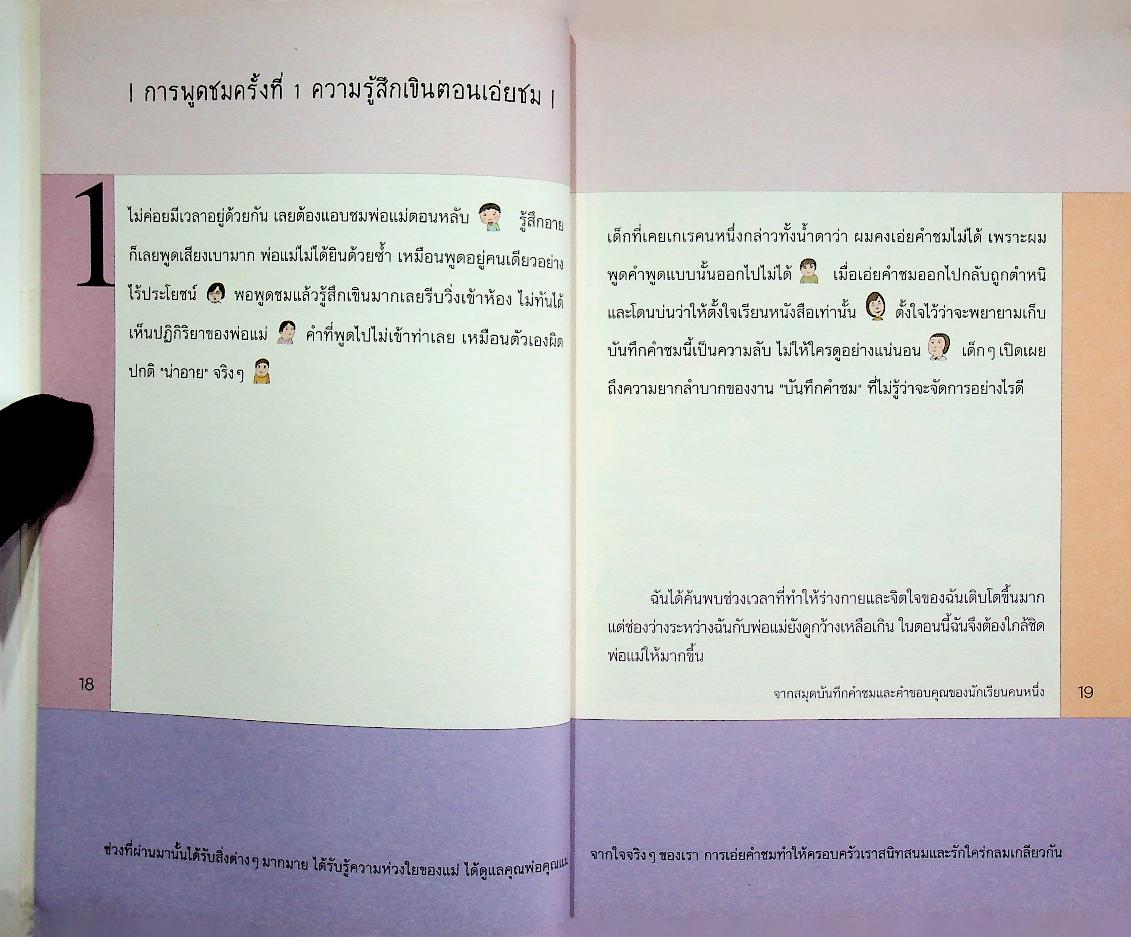 | การพูดชมครั้งที่ 1 ความรู้สึกเขินตอนเอ่ยชม |
1
ไม่ค่อยมีเวลาอยู่ด้วยกัน เลยต้องแอบชมพ่อแม่ตอนหลับ รู้สึกอาย
ก็เลยพูดเสียงเบามาก พ่อแม่ไม่ได้ยินด้วยซ้ำ เหมือนพูดอยู่คนเดียวอย่าง
ไร้ประโยชน์ พอพูดชมแล้วรู้สึกเขินมากเลยรีบวิ่งเข้าห้อง ไม่ทันได้
เห็นปฏิกิริยาของพ่อแม่ คำที่พูดไปไม่เข้าท่าเลย เหมือนตัวเองผิด
ปกติ "น่าอาย" จริงๆ
18
ช่วงที่ผ่านมานั้นได้รับสิ่งต่างๆ มากมาย ได้รับรู้ความห่วงใยของแม่ ได้ดูแลคุณพ่อคุณแม่
เด็กที่เคยเกเรคนหนึ่งกล่าวทั้งน้ำตาว่า ผมคงเอ่ยคำชมไม่ได้ เพราะผม
พูดคำพูดแบบนั้นออกไปไม่ได้ เมื่อเอ่ยคำชมออกไปกลับถูกตำหนิ
และโดนบ่นว่าให้ตั้งใจเรียนหนังสือเท่านั้น ตั้งใจไว้ว่าจะพยายามเก็บ
บันทึกคำชมนี้เป็นความลับ ไม่ให้ใครดูอย่างแน่นอน เด็กๆ เปิดเผย
ถึงความยากลำบากของงาน "บันทึกคำชม" ที่ไม่รู้ว่าจะจัดการอย่างไรดี
ฉันได้ค้นพบช่วงเวลาที่ทำให้ร่างกายและจิตใจของฉันเติบโตขึ้นมาก
แต่ช่องว่างระหว่างฉันกับพ่อแม่ยังดูกว้างเหลือเกิน ในตอนนี้ฉันจึงต้องใกล้ชิด
พ่อแม่ให้มากขึ้น
จากสมุดบันทึกคำชมและคำขอบคุณของนักเรียนคนหนึ่ง
19
จากใจจริงๆ ของเรา การเอ่ยคำชมทำให้ครอบครัวเราสนิทสนมและรักใคร่กลมเกลียวกัน